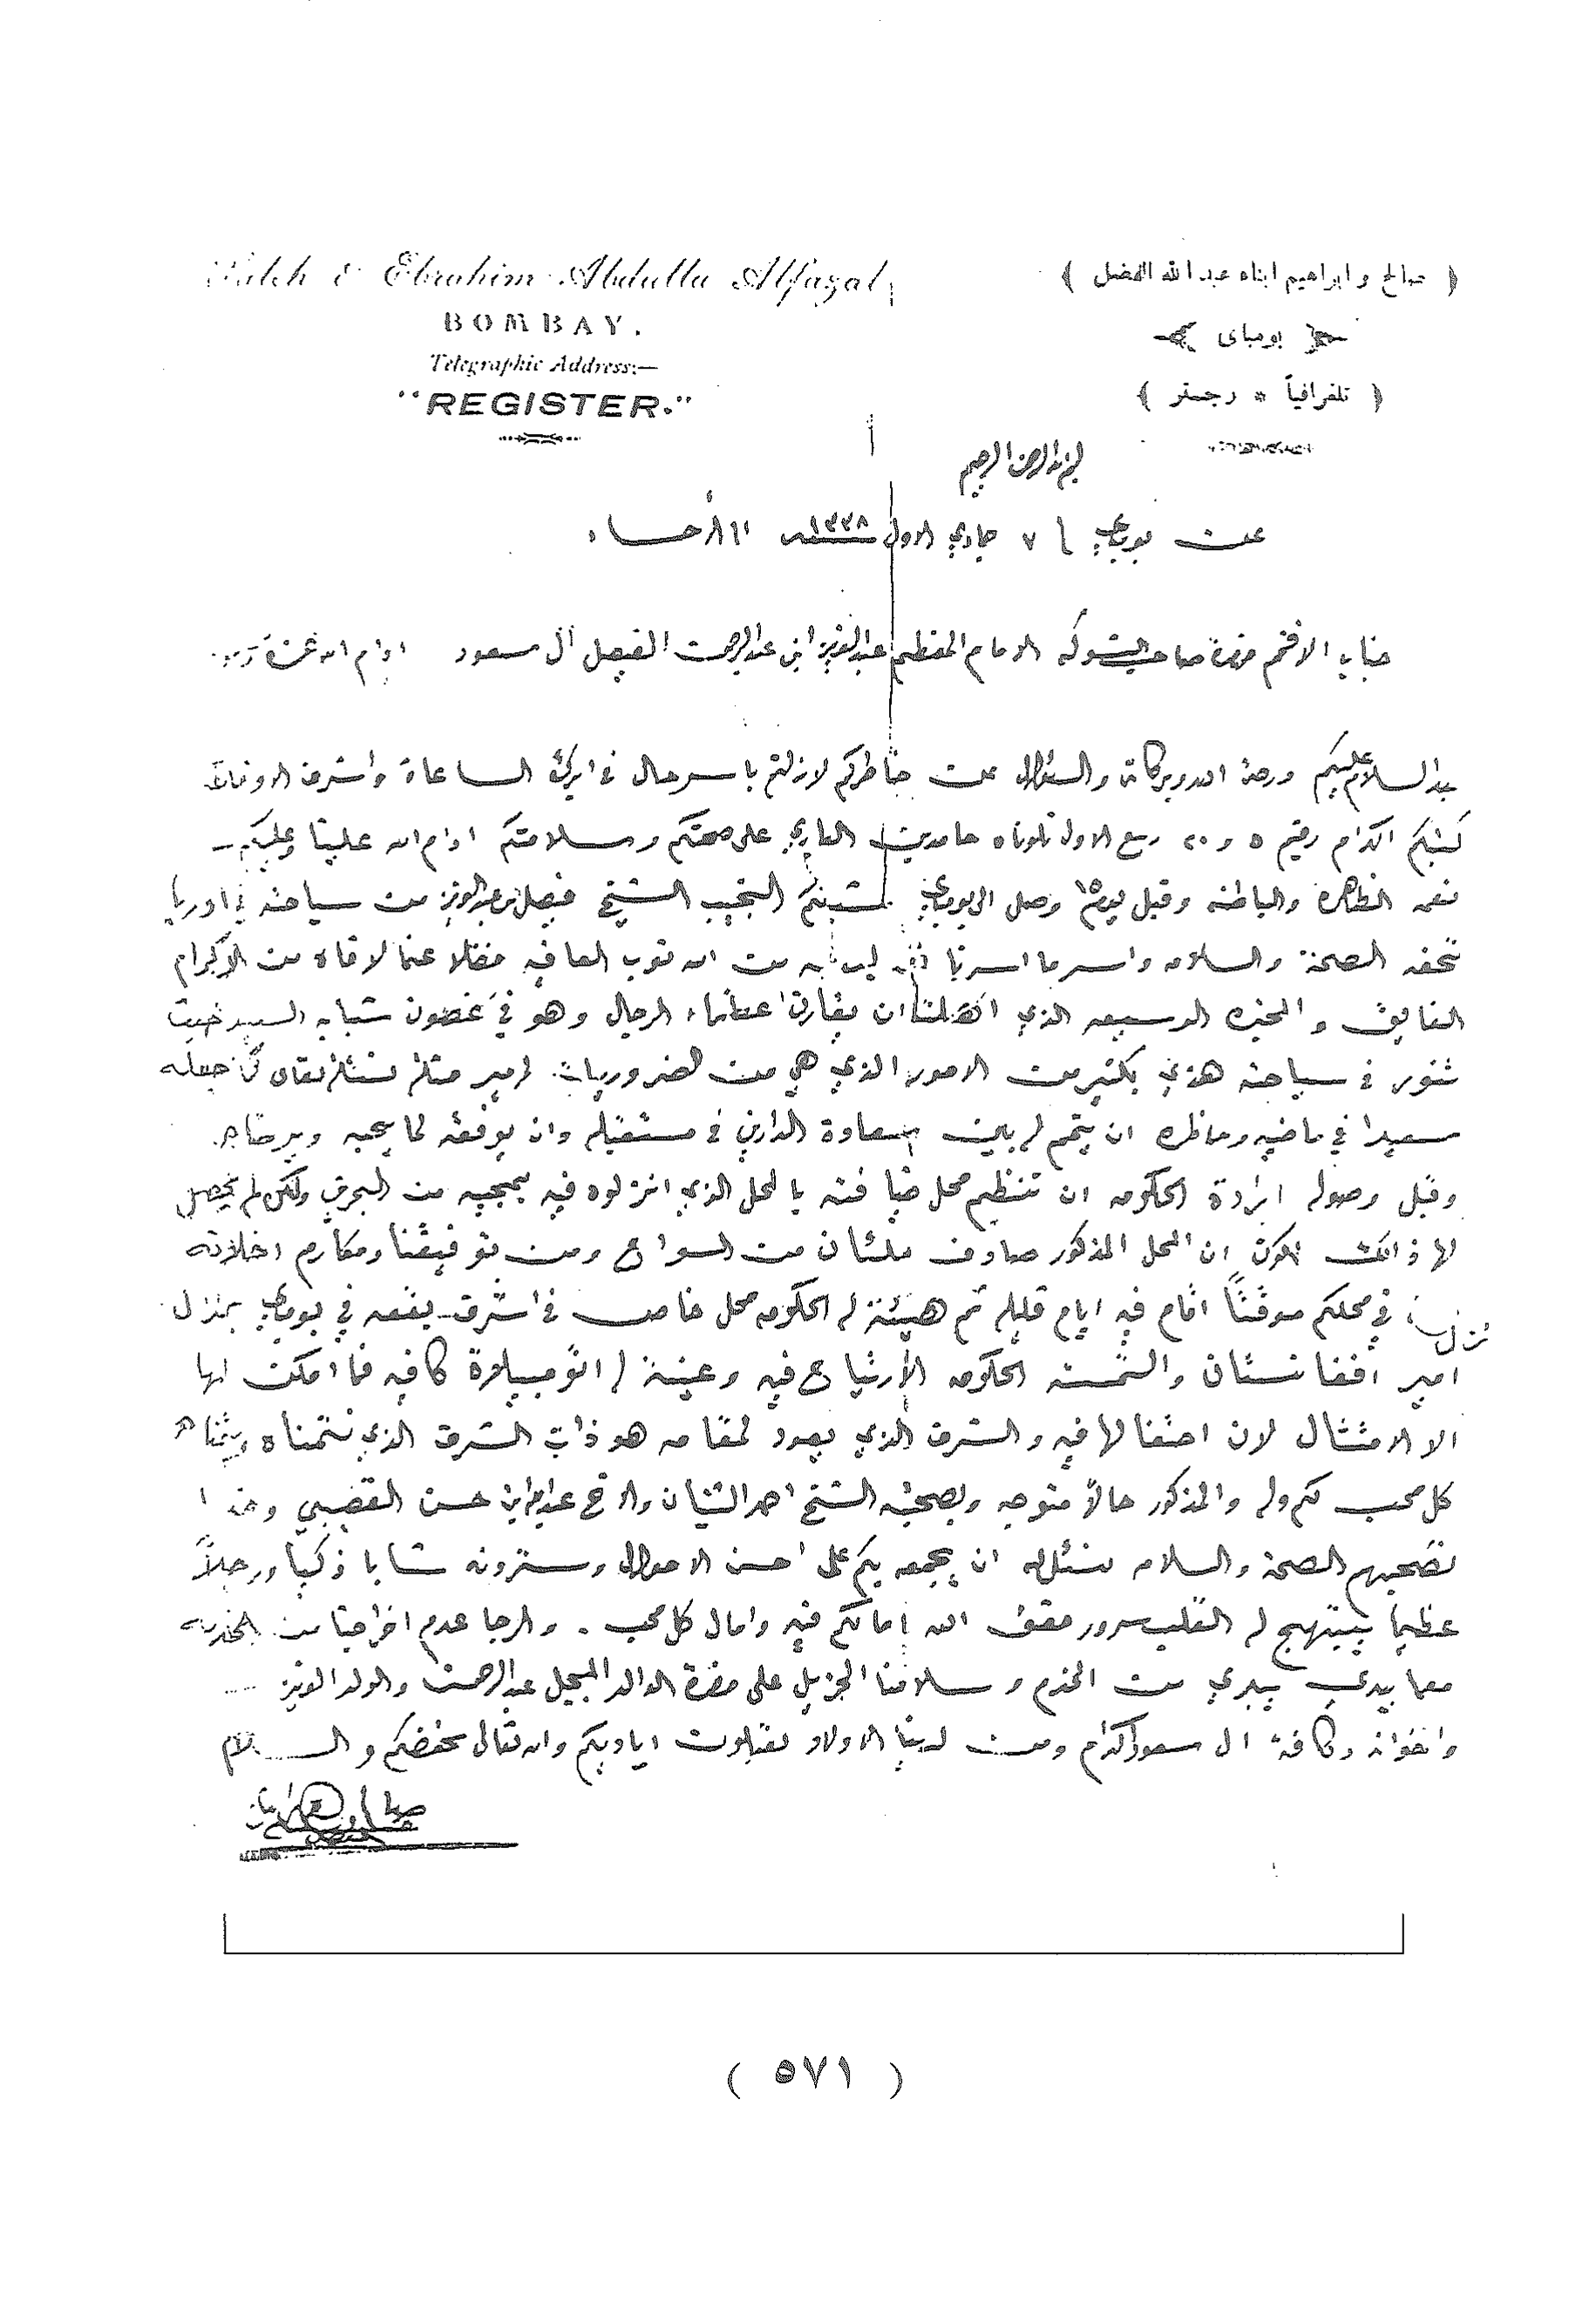 Saleh & Ebrahim Abdulla Alfazal,
BOMBAY.
Telegraphic Address:—
"REGISTER."
( صالح وابراهيم ابناء عبد الله الفضل )
بومباى
( تلغرافياً * رجستر )
بسم الله الرحمن الرحيم
عن بومباي ٧ جمادي الاول سنة ١٣٣٨ الى الأحساء
جناب الافخم حضرة صاحب الشوكه الامام المعظم عبد العزيز ابن عبد الرحمن الفيصل ال سعود ادام الله
بعد السلام عليكم ورحمة الله وبركاته والسؤال عن خاطركم لازلتم باسر حال في ابرك الساعاة واشرف الاوقاة
كتبكم الكرام رقيم ٥ و ٢٠ ربيع الاول تلوناه حامدين الباري على صحتكم وسلامتكم ادام الله علينا وعليكم
نعمه الظاهره والباطنه وقبل يوم وصل الى بومباي النجيب الشيخ فيصل بن عبد العزيز من سياحته في اوربا
تحفه الصحة والسلامه واسر ما اسرنا من الله ثوب العافيه فضلا عما لاقاه من الاكرام
الفايق و الخبره الوسيعه الذي ان يقارن اعظماء الرجال وهو في غضون شبابه السعيد
تنور في سياحته هذي بكثير من الامور الذي هي من الضروريات لامير مثله نسئله تعالى كما جعله
سعيدا في ماضيه وحاظره ان يتمم له بين سعادة الدارين في مستقبله وان يوفقه لما يحبه ويرضاه
وقبل وصوله ارادة الحكومه ان تنظيم محل ضيافته بالمحل الذي انزلوه فيه بمجيه من البحرين ولكن لم يحصل
لها ذالك لكون ان المحل المذكور صادف ملئان من السواح ومن توفيقنا ومكارم اخلاقه
نزل في محلكم موقتاً اقام فيه ايام قليله ثم هيئة له الحكومه محل خاص في اشرف بقعه في بومباي بمنزل
امير افغانستان والتمست الحكومه الارتياح فيه وعينة له اتومبيلاة كافيه فما امكن لها
الا الامتثال لان احتفالها فيه والشرف الذي يعود لمقامه هو ذات الشرف الذي نتمناه ويتمناه
كل محب لكم وله والمذكور حالاً متوجه وبصحبته الشيخ احمد الثنيان والاخ عبد الله ابن حسن القصيبي
تصحبهم الصحة والسلامه نسئل الله ان يجمعه بكم على احسن الاحوال وسترونه شابا ذكيا ورجلاً
عظيما يبتهج له القلب سرور حقق الله امالكم فيه وامال كل محب . والرجا عدم اخراجنا من الخدمه
معما يبدي يبدي من الخدم وسلامنا الجزيل على حضرة الوالد المبجل عبد الرحمن والولد العزيز
واخوانه وكافة ال سعود الكرام ومن لدينا الاولاد يقبلون اياديكم والله تعالى يحفضكم والسلام
( ٥٧١ )